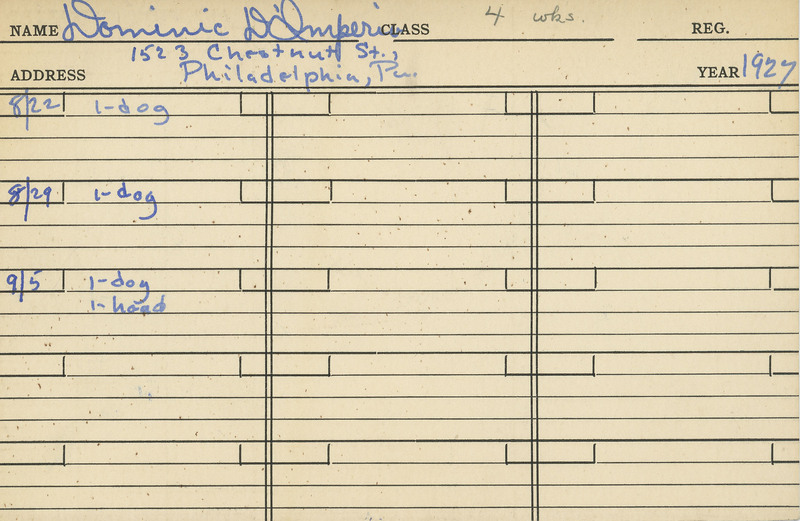 NAME Dominic D'Imperio CLASS 4 wks. REG.
1523 Chestnut St.,
ADDRESS Philadelphia, Pa. YEAR 1927
8/22 1-dog
8/29 1-dog
9/5 1-dog
1-head